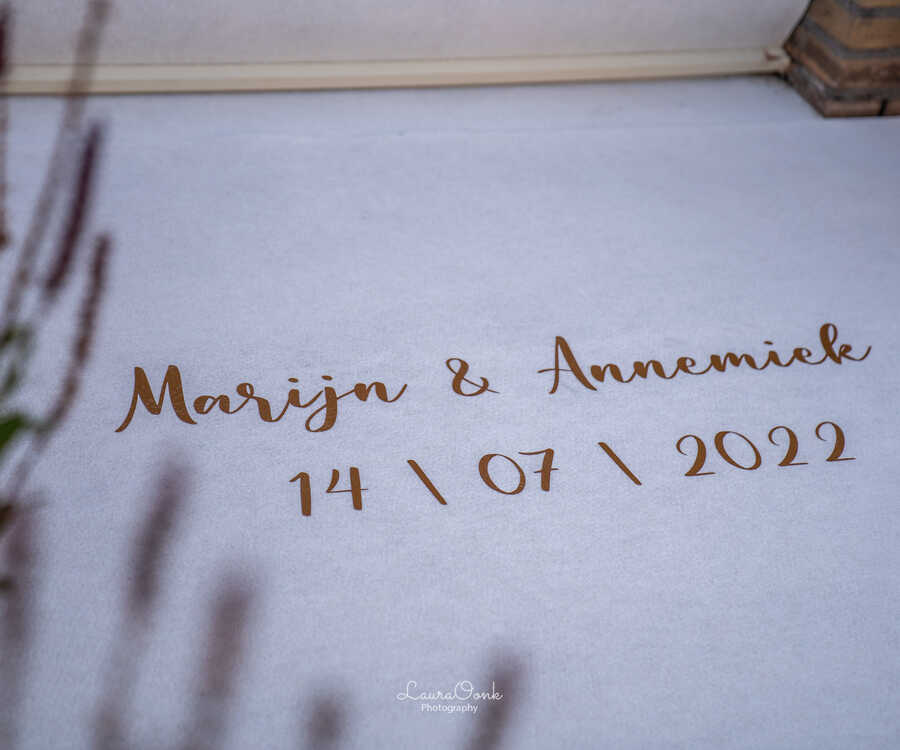 Marijn & Annemiek
14 \ 07 \ 2022
Laura Oonk
Photography